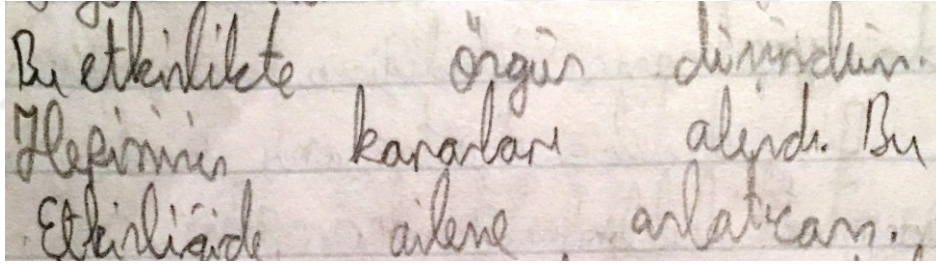 Bu etkinlikte özgür düşündüm.
Hepimizin kararları alındı. Bu
Etkinliğide aileme anlatıcam.